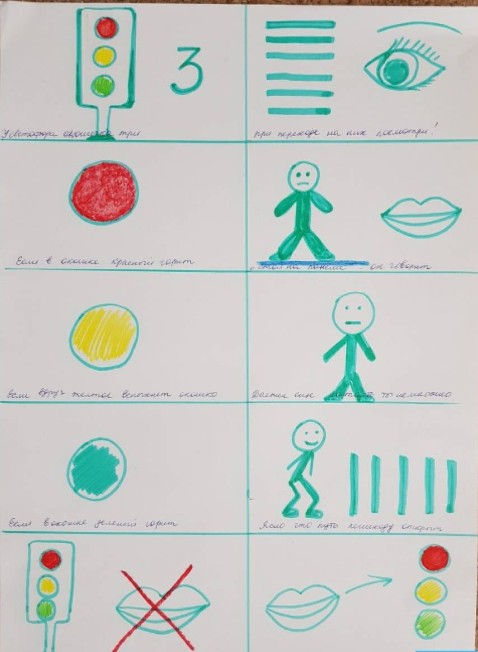 У светофора окошечка три
3
При переходе на них посмотри!
Если в окошке красный горит
"Стой на панели" - он говорит
Если вдруг желтое вспыхнет окошко
Если в окошке зеленый горит
Ясно что путь пешеходу открыт